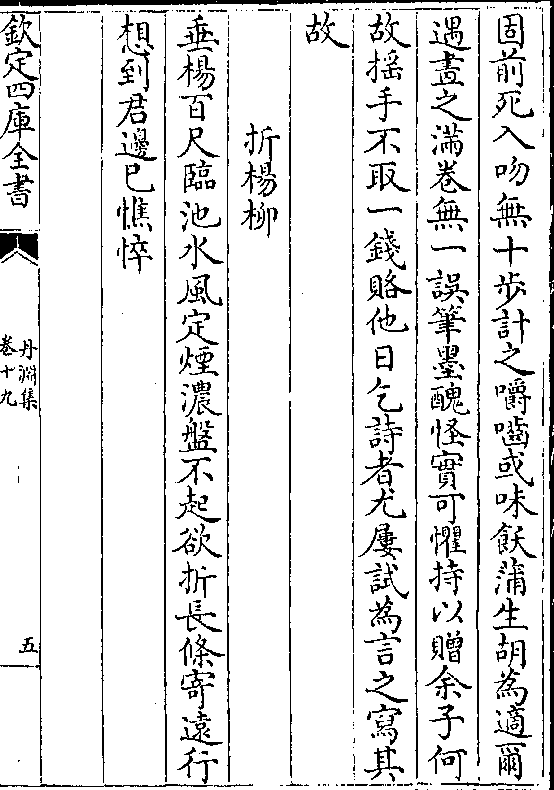 固前死入吻無十步計之嚼嚙或味飫蒲生胡為適爾
遇畫之滿卷無一誤筆墨醜怪實可懼持以贈余子何
故揺手不取一錢賂他日乞詩者尤屢試為言之寫其
故
折楊柳
垂楊百尺臨池水風定煙濃盤不起欲折長條寄遠行
想到君邊已憔悴
欽定四庫全書
丹淵集
卷十九
五